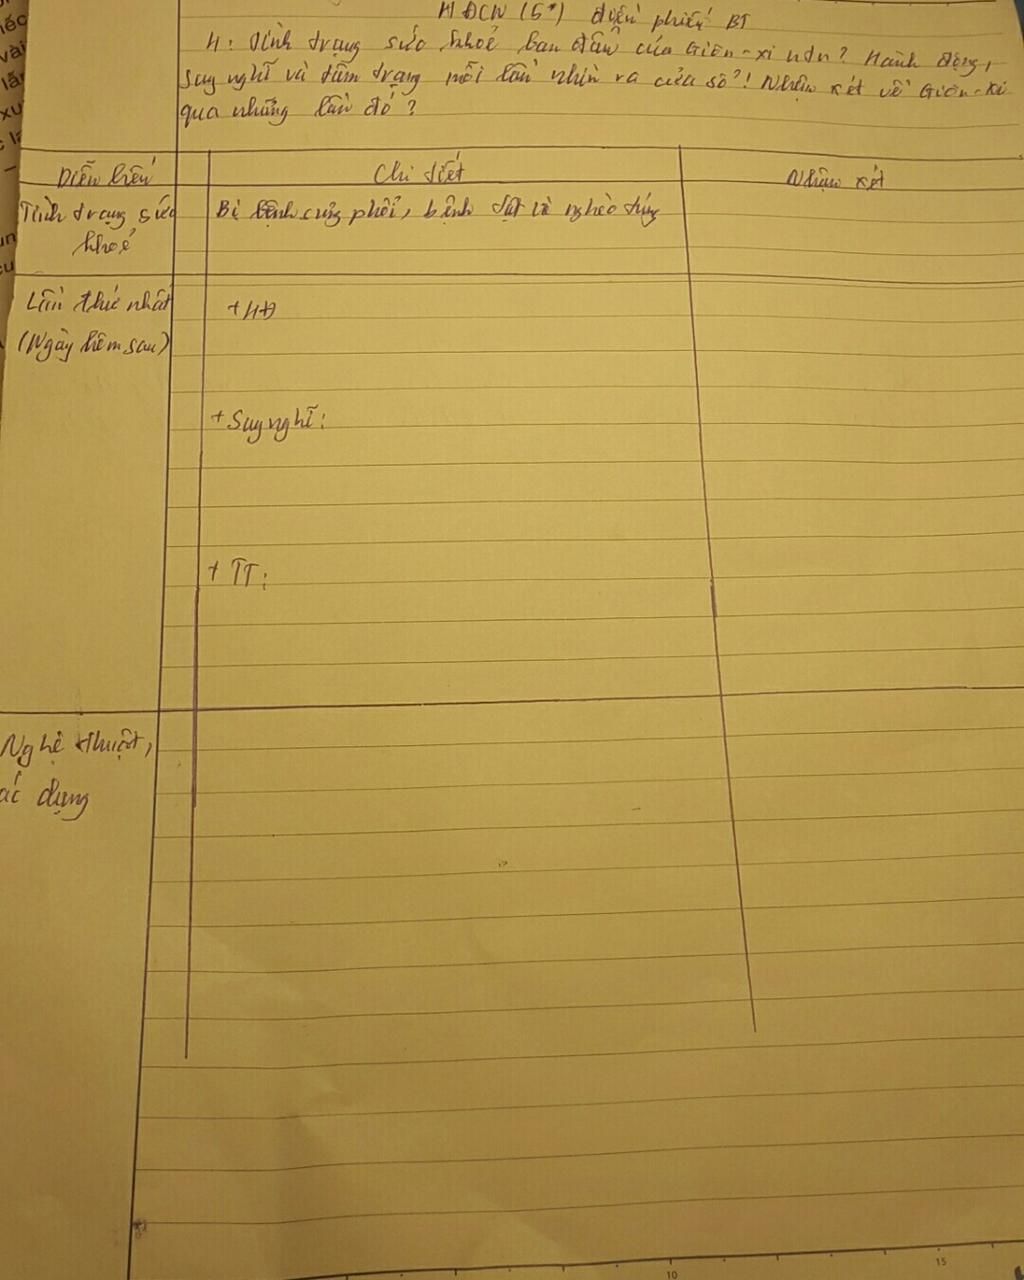 HĐCN (5') điền phiếu BT
H: Tình trạng sức khoẻ ban đầu của Giôn-xi ntn? Hành động,
suy nghĩ và tâm trạng mỗi lần nhìn ra cửa sổ?! Nhận xét về Giôn-xi
qua những lần đó?
Diễn biến
Chi tiết
Nhận xét
Tình trạng sức
khoẻ
Bị bệnh sưng phổi, bệnh tật và nghèo túng
Lần thứ nhất
(Ngày hôm sau)
+ HĐ
+ Suy nghĩ:
+ TT:
Nghệ thuật,
ác dụng
10
15